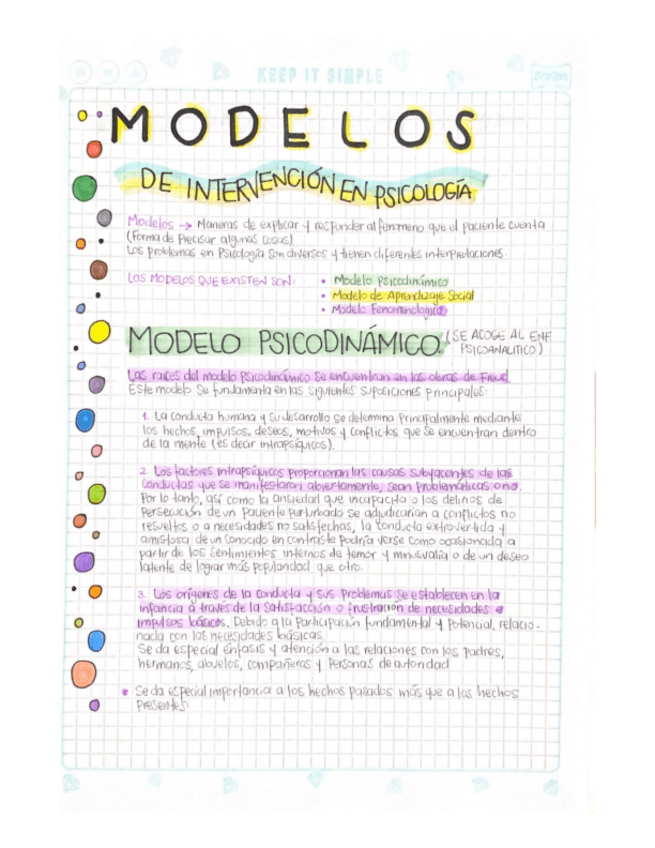 KEEP IT SIMPLE
Scribe
MODELOS
DE INTERVENCIÓN EN PSICOLOGÍA
Modelos → Maneras de explicar y responder al fenomeno que el paciente cuenta
(Forma de Precisar algunas cosas)
Los problemas en Psicología son diversos y tienen diferentes interpretaciones.
LOS MODELOS QUE EXISTEN SON:
• Modelo Psicodinámico
• Modelo de Aprendizaje Social
• Modelo Fenomenologico
MODELO PSICODINÁMICO. (SE ACOGE AL ENF
PSICOANALITICO)
Las raíces del modelo Psicodinámico se encuentran en las obras de Freud
Este modelo se fundamenta en las siguientes suposiciones principales:
1. La conducta humana y su desarrollo se determina principalmente mediante
los hechos, impulsos, deseos, motivos y conflictos que se encuentran dentro
de la mente (es decir intrapsíquicos).
2. Los factores intrapsíquicos proporcionan las causas subyacentes de las
conductas que se manifestaron abiertamente, sean Problemáticas o no.
Por lo tanto, así como la ansiedad que incapacita o los delirios de
persecución de un paciente perturbado se adjudicarían a conflictos no
resueltos o a necesidades no satisfechas, la conducta extrovertida y
amistosa de un conocido en contraste podría verse como ocasionada a
partir de los sentimientos internos de temor y minusvalía o de un deseo
latente de lograr más popularidad que otro.
3. Los orígenes de la conducta y sus problemas se establecen en la
infancia a través de la satisfacción o frustración de necesidades e
impulsos básicos. Debido a la participación fundamental y potencial, relacio-
nada con las necesidades básicas.
Se da especial énfasis y atención a las relaciones con los padres,
hermanos, abuelos, compañeros y personas de autoridad
• Se da especial importancia a los hechos pasados más que a los hechos
presentes.